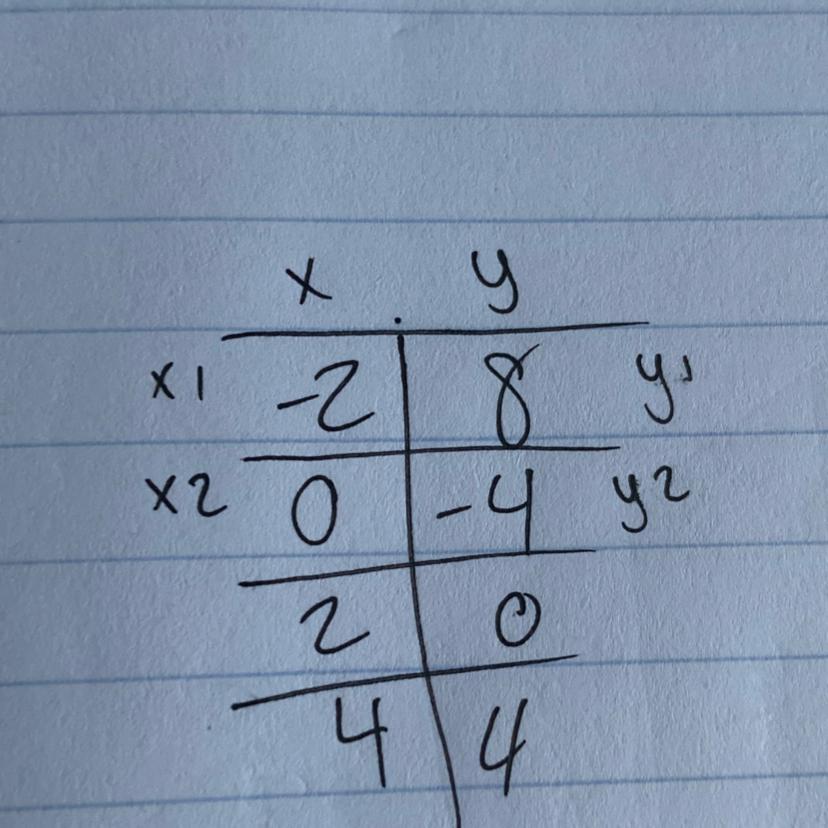 x y
x1 -2 8 y1
x2 0 -4 y2
2 0
4 4